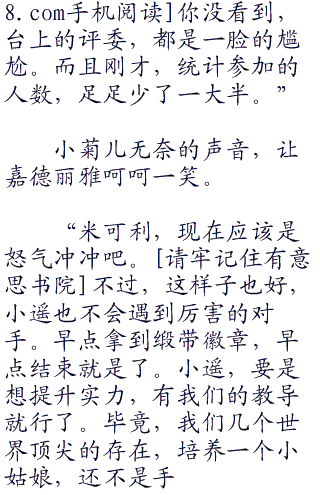 8.com手机阅读]你没看到,
台上的评委, 都是一脸的尴
尬。而且刚才, 统计参加的
人数, 足足少了一大半。”
小菊儿无奈的声音, 让
嘉德丽雅呵呵一笑。
“米可利, 现在应该是
怒气冲冲吧。[请牢记住有意
思书院]不过, 这样子也好,
小遥也不会遇到厉害的对
手。早点拿到缎带徽章, 早
点结束就是了。小遥, 要是
想提升实力, 有我们的教导
就行了。毕竟, 我们几个世
界顶尖的存在, 培养一个小
姑娘, 还不是手